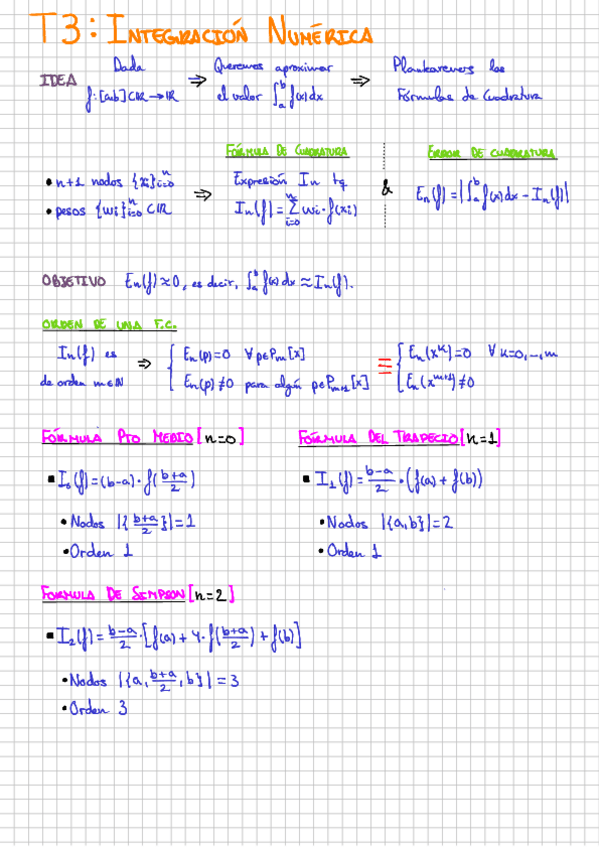 T3: INTEGRACIÓN NUMÉRICA
IDEA Dada f:[a,b]⊂ℝ→ℝ ⇒ Queremos aproximar el valor ∫_a^b f(x)dx ⇒ Plantearemos las Fórmulas de Cuadratura
FÓRMULA DE CUADRATURA
ERROR DE CUADRATURA
• n+1 nodos {xi}_{i=0}^n ⇒ Expresión In tq
• pesos {wi}_{i=0}^n ⊂ℝ In(f)=∑_{i=0}^n wi·f(xi) & En(f)=|∫_a^b f(x)dx - In(f)|
OBJETIVO En(f)≈0, es decir, ∫_a^b f(x)dx≈In(f).
ORDEN DE UNA F.C.
In(f) es ⇒ { En(p)=0 ∀p∈Pm[x] ≡ { En(x^k)=0 ∀k=0,-,m
de orden m∈ℕ En(p)≠0 para algún p∈Pm+1[x] En(x^{m+1})≠0
FÓRMULA PTO MEDIO [n=0]
▪ I₀(f)=(b-a)·f((b+a)/2)
• Nodos |{(b+a)/2}|=1
• Orden 1
FÓRMULA DEL TRAPECIO [n=1]
▪ I₁(f)=(b-a)/2·(f(a)+f(b))
• Nodos |{a,b}|=2
• Orden 1
FORMULA DE SIMPSON [n=2]
▪ I₂(f)=(b-a)/2·[f(a)+4·f((b+a)/2)+f(b)]
• Nodos |{a,(b+a)/2,b}|=3
• Orden 3